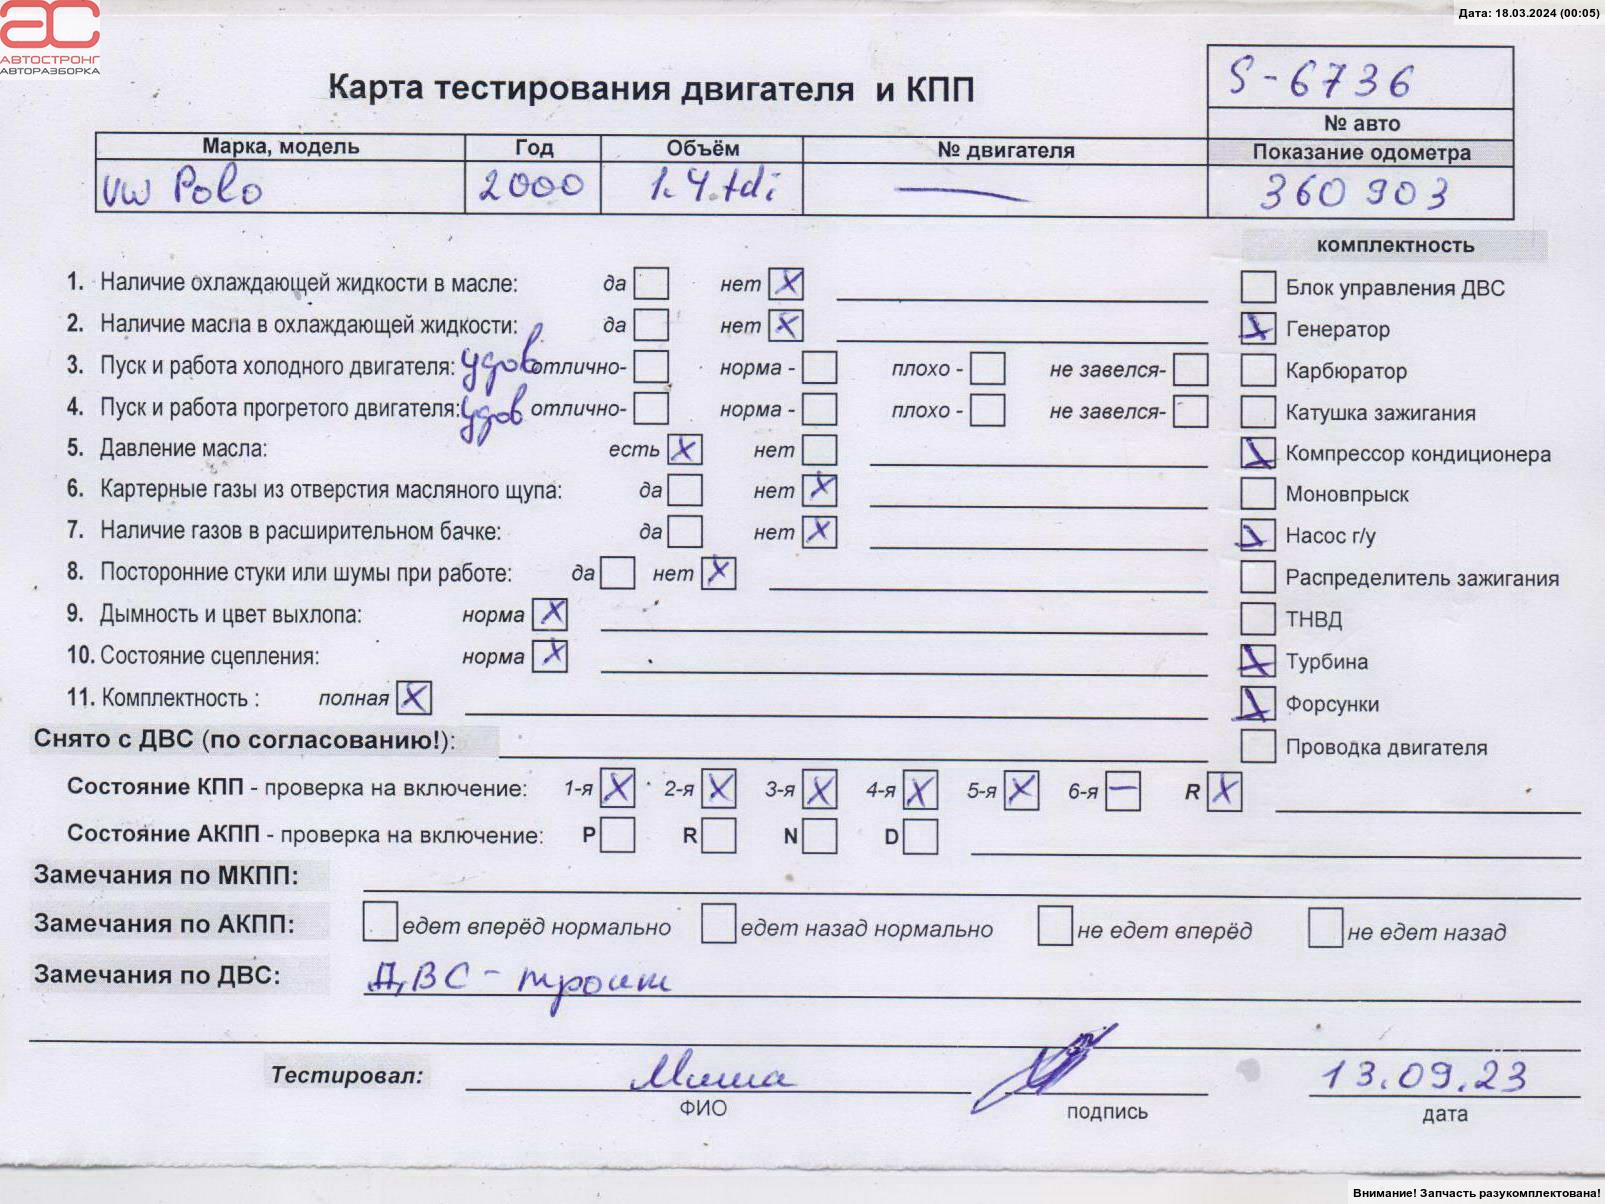 АС
АВТОСТРОНГ
АВТОРАЗБОРКА
Дата: 18.03.2024 (00:05)
Карта тестирования двигателя и КПП
S-6736
№ авто
Марка, модель Год Объём № двигателя Показание одометра
VW Polo 2000 1.4.tdi — 360 903
комплектность
1. Наличие охлаждающей жидкости в масле: да нет X
Блок управления ДВС
2. Наличие масла в охлаждающей жидкости: да нет X
Генератор
3. Пуск и работа холодного двигателя: удов отлично- норма - плохо - не завелся-
Карбюратор
4. Пуск и работа прогретого двигателя: удов отлично- норма - плохо - не завелся-
Катушка зажигания
5. Давление масла: есть X нет
Компрессор кондиционера
6. Картерные газы из отверстия масляного щупа: да нет X
Моновпрыск
7. Наличие газов в расширительном бачке: да нет X
Насос г/у
8. Посторонние стуки или шумы при работе: да нет X
Распределитель зажигания
9. Дымность и цвет выхлопа: норма X
ТНВД
10. Состояние сцепления: норма X
Турбина
11. Комплектность : полная X
Форсунки
Снято с ДВС (по согласованию!):
Проводка двигателя
Состояние КПП - проверка на включение: 1-я X 2-я X 3-я X 4-я X 5-я X 6-я — R X
Состояние АКПП - проверка на включение: P R N D
Замечания по МКПП:
Замечания по АКПП: едет вперёд нормально едет назад нормально не едет вперёд не едет назад
Замечания по ДВС: ДВС - троит
Тестировал: Миша 13.09.23
ФИО подпись дата
Внимание! Запчасть разукомплектована!